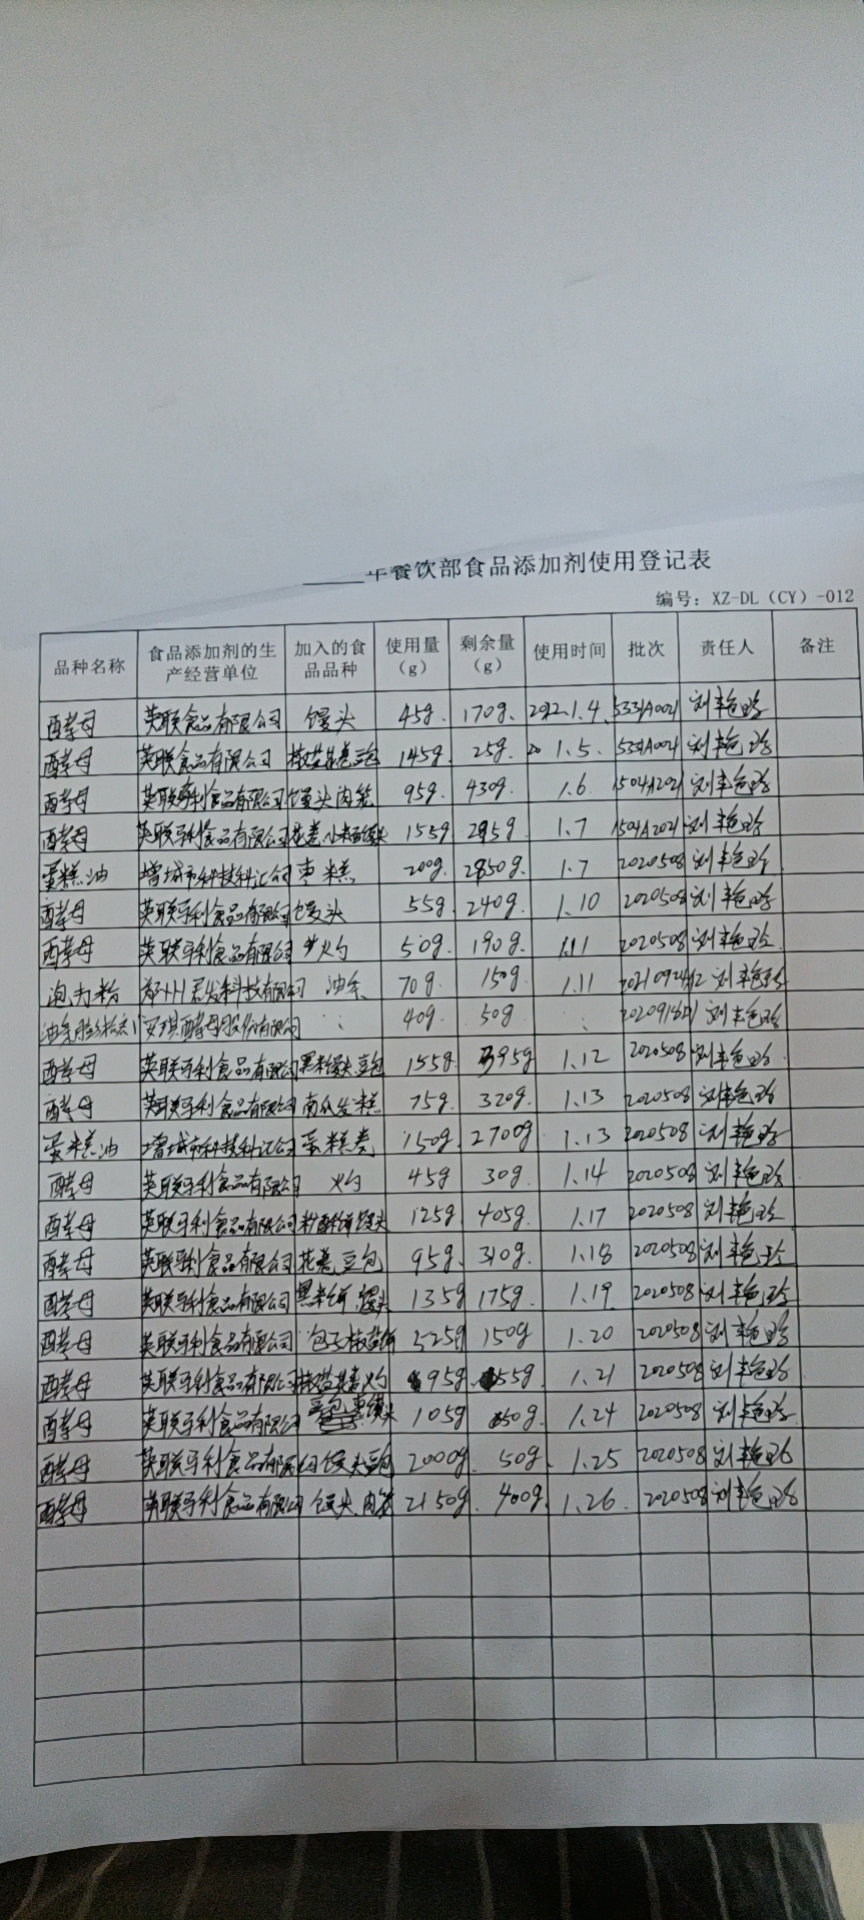 年餐饮部食品添加剂使用登记表
编号：XZ-DL（CY）-012
品种名称 食品添加剂的生产经营单位 加入的食品品种 使用量（g） 剩余量（g） 使用时间 批次 责任人 备注
酵母 英联食品有限公司 馒头 45g. 170g. 2022.1.4 刘丰色
酵母 英联食品有限公司 145g. 25g. 1.5. 刘丰色
酵母 英联马利食品有限公司 馒头肉笼 95g. 430g. 1.6 1504A2021 刘丰色
酵母 英联马利食品有限公司 155g 1.7 1504A2021 刘丰色
蛋糕油 增城市科技科汇公司 枣糕 200g. 1.7 2020508 刘丰色
酵母 英联马利食品有限公司 馒头 55g. 240g. 1.10 2020508 刘丰色
酵母 英联马利食品有限公司 50g. 190g. 1.11 2020508 刘丰色
泡力粉 郑州 科技有限公司 油条 70g. 150g. 1.11 刘丰色
安琪酵母股份有限公司 40g. 50g. 刘丰色
酵母 英联马利食品有限公司 黑米馒头豆包 155g. 395g 1.12 2020508 刘丰色
酵母 英联马利食品有限公司 南瓜发糕 75g. 320g. 1.13 2020508 刘丰色
蛋糕油 增城市科技科汇公司 蛋糕卷 150g. 2700g. 1.13 2020508 刘丰色
酵母 英联马利食品有限公司 45g 30g. 1.14 2020508 刘丰色
酵母 英联马利食品有限公司 125g. 405g. 1.17 2020508 刘丰色
酵母 英联马利食品有限公司 花卷 豆包 95g. 310g. 1.18 2020508 刘丰色
酵母 英联马利食品有限公司 黑米饼 馒头 135g 175g. 1.19 2020508 刘丰色
酵母 英联马利食品有限公司 包子 150g 1.20 2020508 刘丰色
酵母 英联马利食品有限公司 95g. 55g. 1.21 2020508 刘丰色
酵母 英联马利食品有限公司 105g 1.24 2020508 刘丰色
酵母 英联马利食品有限公司 馒头豆包 2000g. 50g. 1.25 2020508 刘丰色
酵母 英联马利食品有限公司 馒头.肉笼 2150g. 400g. 1.26. 2020508 刘丰色